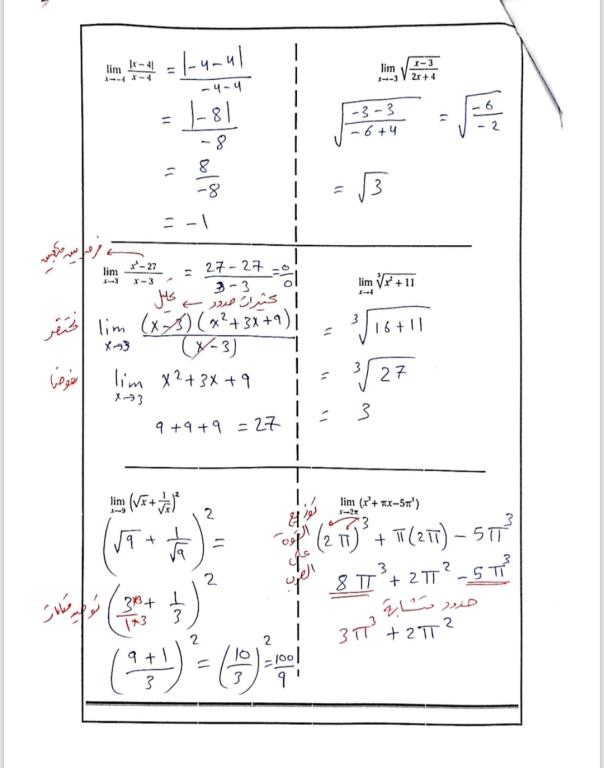 lim x→-4 |x-4| / x-4 = |-4-4| / -4-4
= |-8| / -8
= 8 / -8
= -1
lim x→-3 √(x-3 / 2x+4)
√(-3-3 / -6+4) = √(-6 / -2)
= √3
فرق بين مكعبين
lim x→3 x³-27 / x-3 = 27-27 / 3-3 = 0/0
كثيرات حدود ← تحليل
نختصر lim x→3 (x-3)(x²+3x+9) / (x-3)
نعوض lim x→3 x²+3x+9
9+9+9 = 27
lim x→4 ³√(x²+11)
= ³√(16+11)
= ³√27
= 3
lim x→9 (√x + 1/√x)²
(√9 + 1/√9)² =
توحيد مقامات (3×3 / 1×3 + 1/3)²
(9+1 / 3)² = (10/3)² = 100/9
lim x→2π (x³+πx-5π³)
توزيع القوة على الضرب
(2π)³ + π(2π) - 5π³
8π³ + 2π² - 5π³
حدود متشابهة
3π³ + 2π²